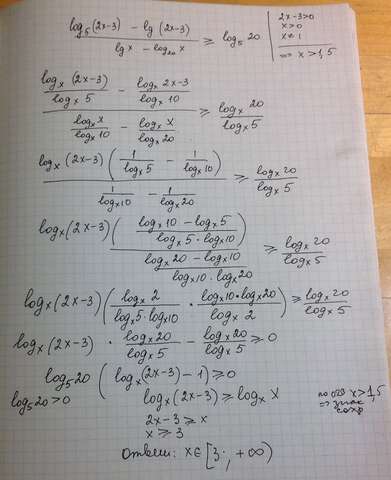 (log₅(2x-3) - lg(2x-3)) / (lg x - log₂₀ x) ≥ log₅ 20
2x-3>0
x>0
x≠1
⇒ x>1,5
(logₓ(2x-3)/logₓ 5 - logₓ 2x-3/logₓ 10) / (logₓ x/logₓ 10 - logₓ x/logₓ 20) ≥ logₓ 20/logₓ 5
logₓ(2x-3)(1/logₓ 5 - 1/logₓ 10) / (1/logₓ 10 - 1/logₓ 20) ≥ logₓ 20/logₓ 5
logₓ(2x-3)(((logₓ 10 - logₓ 5)/(logₓ 5 · logₓ 10)) / ((logₓ 20 - logₓ 10)/(logₓ 10 · logₓ 20))) ≥ logₓ 20/logₓ 5
logₓ(2x-3)(logₓ 2/(logₓ 5 · logₓ 10) · (logₓ 10 · logₓ 20)/logₓ 2) ≥ logₓ 20/logₓ 5
logₓ(2x-3) · logₓ 20/logₓ 5 - logₓ 20/logₓ 5 ≥ 0
log₅ 20 (logₓ(2x-3) - 1) ≥ 0
log₅ 20 > 0
logₓ(2x-3) ≥ logₓ x
по ОДЗ x>1,5
⇒ знак
сохр
2x-3 ≥ x
x ≥ 3
Ответ: x∈[3; +∞)